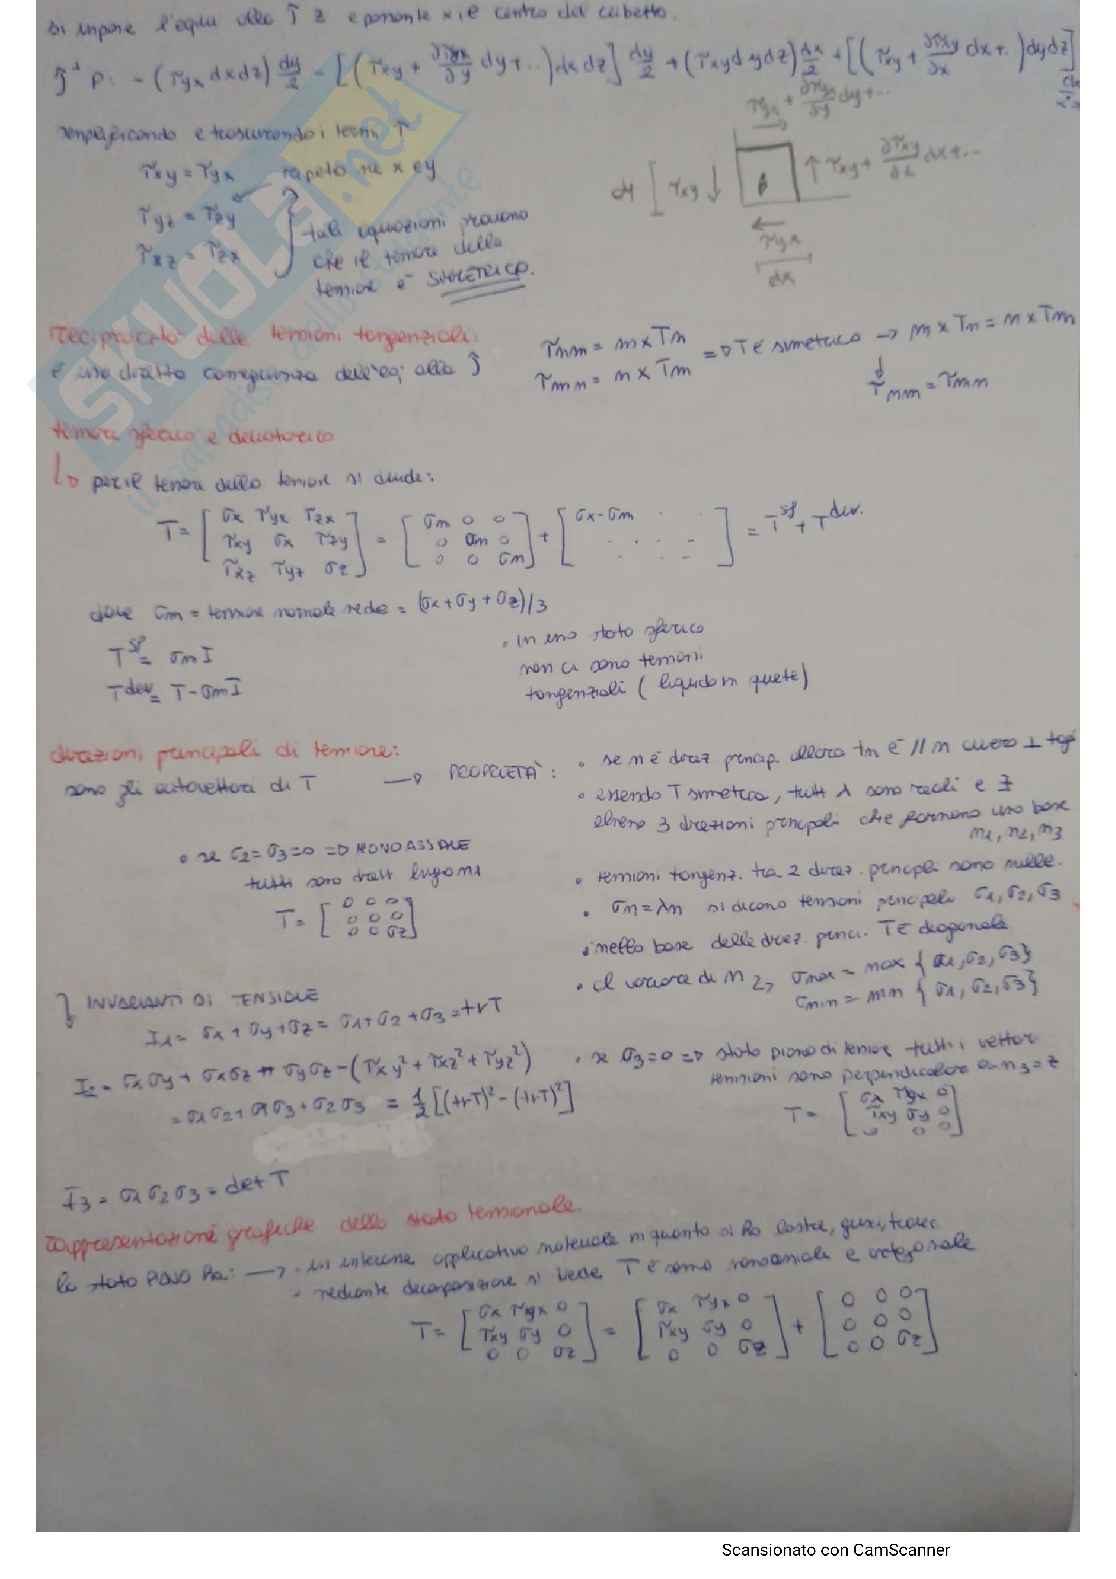 Si impone l'equil alla z e ponente x,é centro del cubetto.
P: - (τyx dxdz) dy/2 - [(τxy + ∂τyx/∂y dy+..) dx dz] dy/2 + (τxy dy dz) dx/2 + [(τxy + ∂τxy/∂x dx+..) dy dz]
semplificando e trascurando i termi
τyx + ∂τyx/∂y dy+...
τxy = τyx rispetto ai x e y
τyz = τzy
τxz = τzx
tali equazioni provano
che il tensore della
tensione è SIMMETRICO.
τxy ↓ P ↑ τxy + ∂τxy/∂x dx+...
τyx
dx
reciprocità delle tensioni tangenziali:
è una diretta conseguenza dell'eq. alla
τnm = m x Tn
τmn = n x Tm
=> T è simmetrico → m x Tn = n x Tm
↓
τnm = τmn
tensore sferico e deviatorico
↳ per il tensore dello tensione si divide:
T = [σx τyx τzx
τxy σx τzy
τxz τyz σz] = [σm 0 0
0 σm 0
0 0 σm] + [σx-σm . .
. . . .
. . . .] = T^sf + T^dev.
dove σm = tensione normale media = (σx+σy+σz)/3
T^sf = σm I
T^dev = T - σm I
• in uno stato sferico
non ci sono tensioni
tangenziali (liquido in quiete)
direzioni principali di tensione:
sono gli autovettori di T → PROPRIETÀ:
• se n è direz princip. allora tn è // n ovvero ⊥
• essendo T simmetrico, tutti λ sono reali e ∃
almeno 3 direzioni principali che formano una base
n1, n2, n3
• se σ2=σ3=0 => MONOASSIALE
tutti sono diretti lungo n1
T = [0 0 0
0 0 0
0 0 σz]
• tensioni tangenz. tra 2 direz. principali sono nulle.
• σn=λn si dicono tensioni principali σ1, σ2, σ3
• nella base delle direz. princi. T è diagonale
• al variare di n σmax = max {σ1, σ2, σ3}
σmin = min {σ1, σ2, σ3}
INVARIANTI DI TENSIONE
I1 = σx + σy + σz = σ1 + σ2 + σ3 = trT
I2 = σxσy + σxσz + σyσz - (τxy² + τxz² + τyz²)
= σ1σ2 + σ1σ3 + σ2σ3 = 1/2 [(trT)² - (trT)²]
• se σ3=0 => stato piano di tensione tutti i vettori
tensioni sono perpendicolari a n3=z
T = [σx τyx 0
τxy σy 0
0 0 0]
I3 = σ1σ2σ3 = det T
rappresentazione grafiche dello stato tensionale.
lo stato PIANO ha: → • un interesse applicativo notevole in quanto si ha lastre, gusci, travi
• mediante decomposizione si vede T è somma monoassiale e ortogonale
T = [σx τyx 0
τxy σy 0
0 0 σz] = [σx τyx 0
τxy σy 0
0 0 σz] + [0 0 0
0 0 0
0 0 σz]
SKUOLA.net
Scansionato con CamScanner